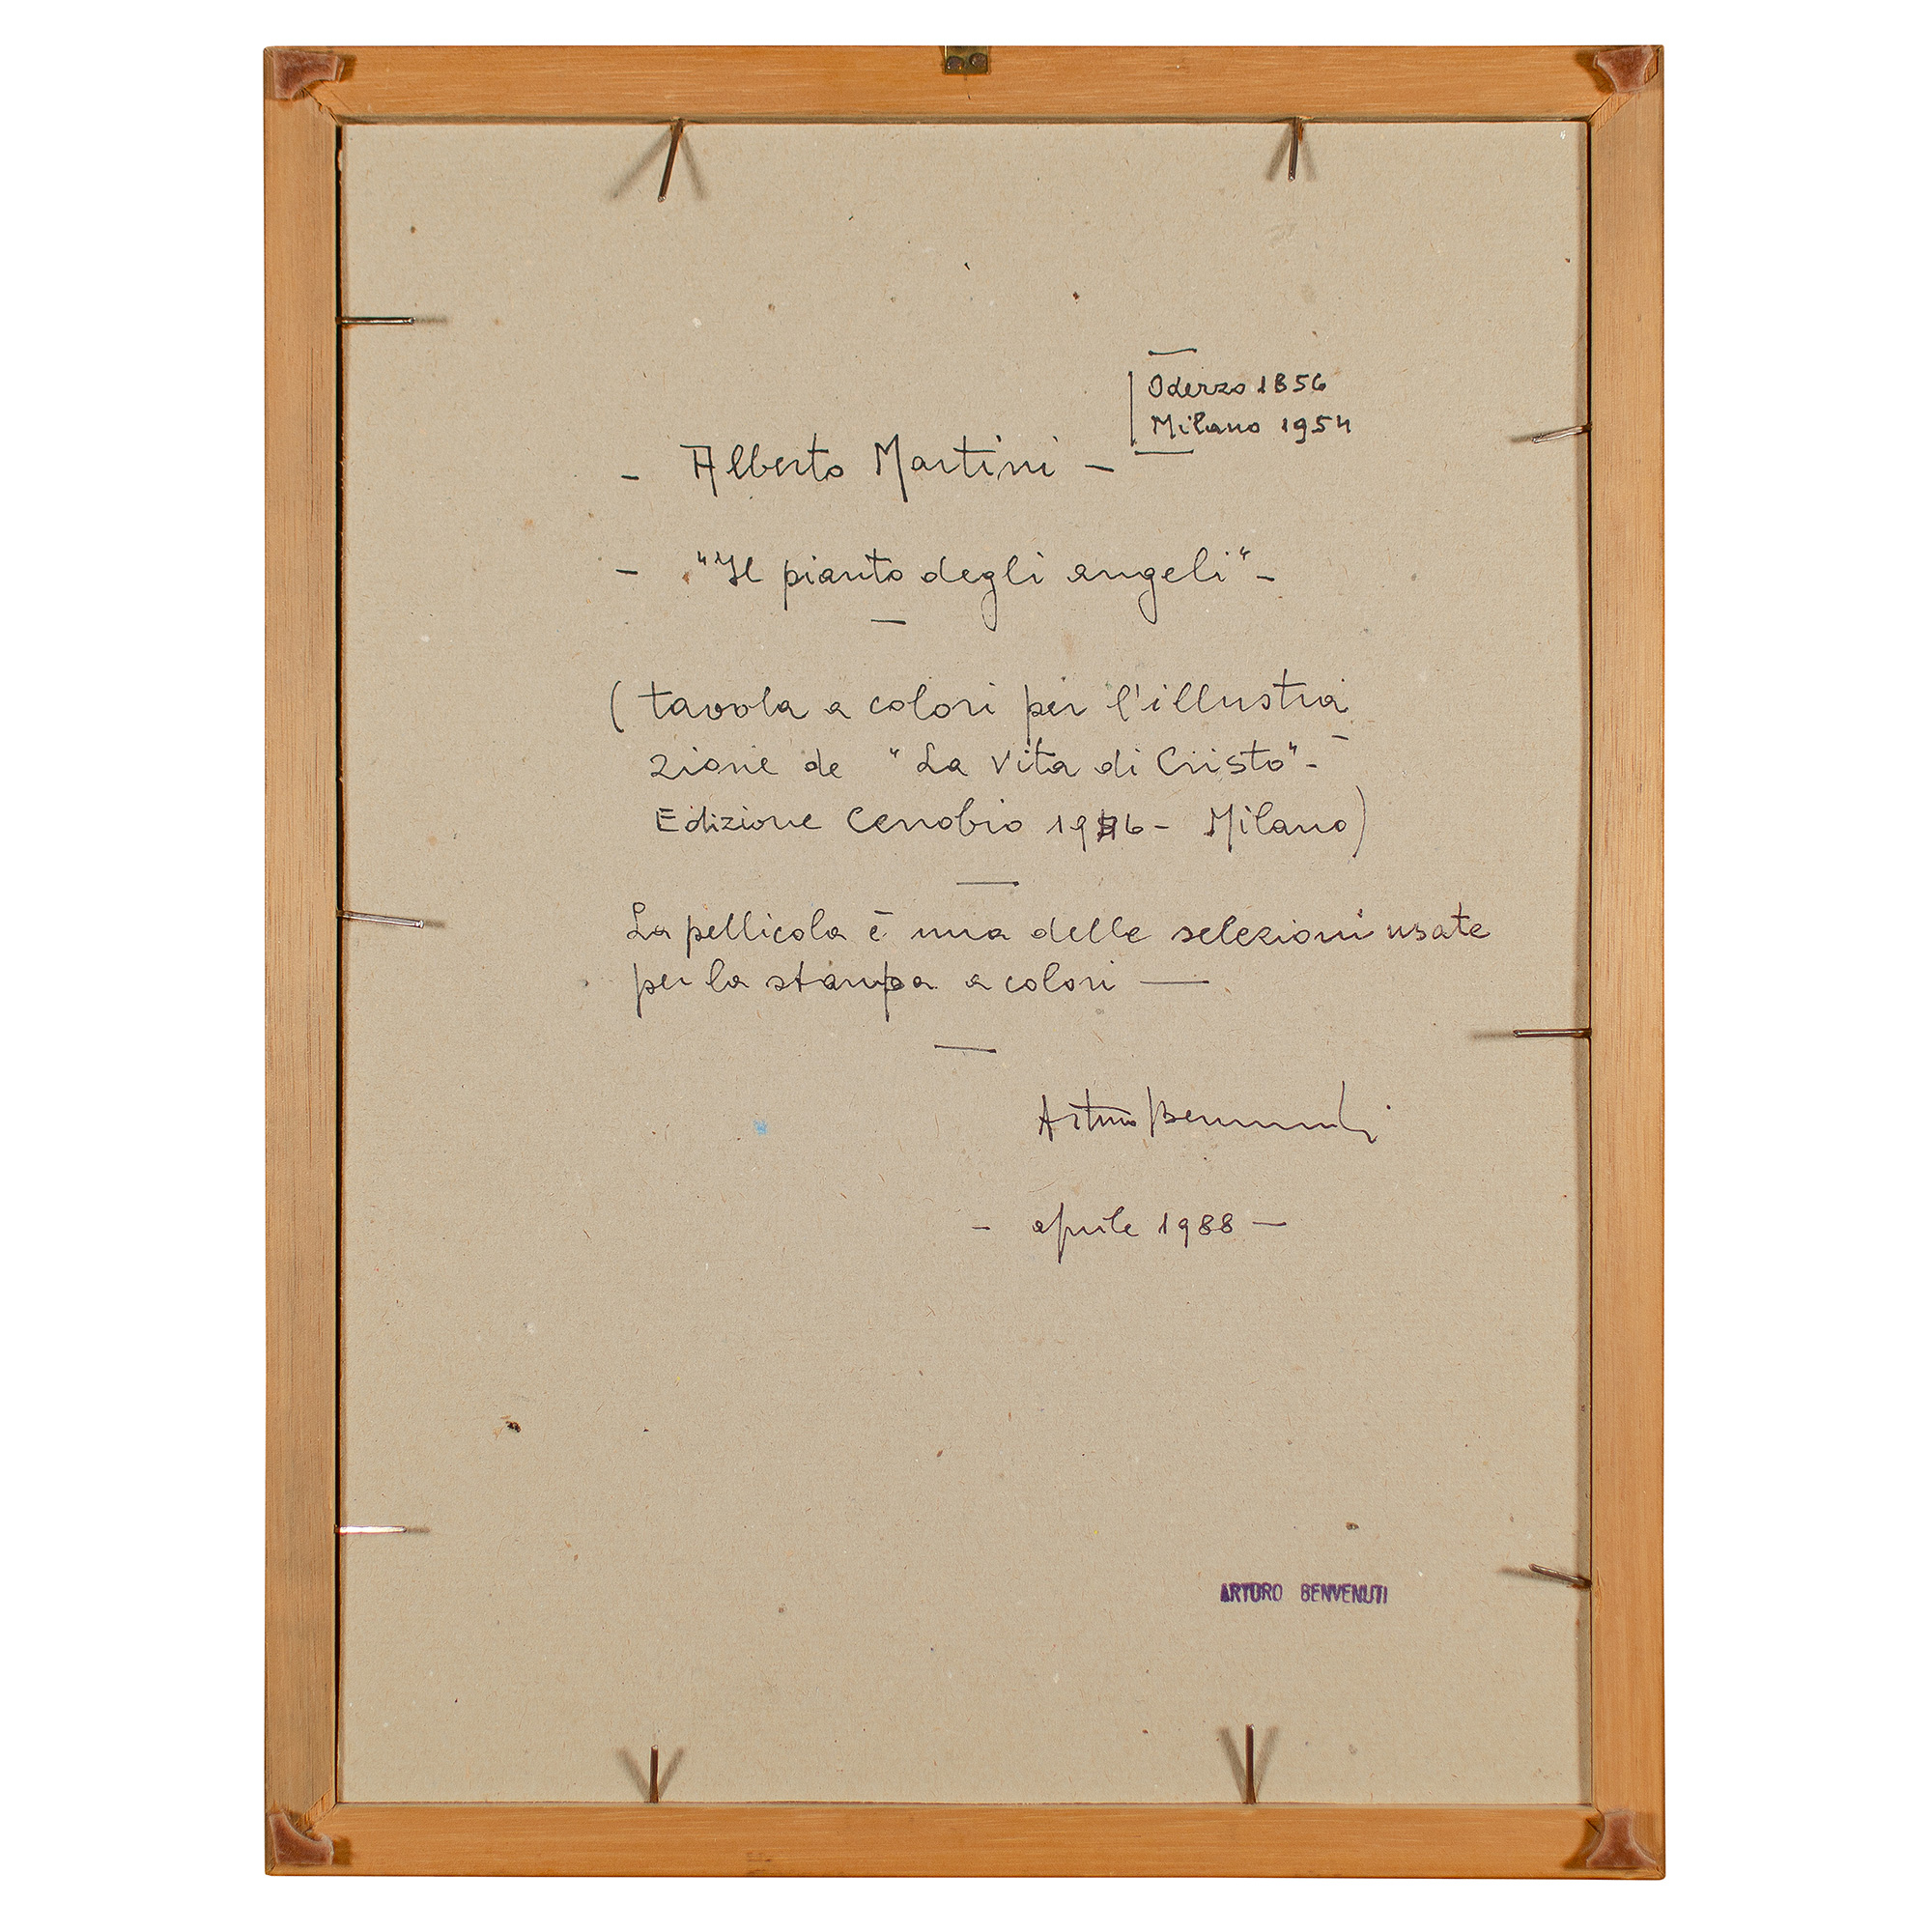 Oderzo 1856
Milano 1954
- Alberto Martini -
- "Il pianto degli angeli" -
( tavola a colori per l'illustra-
zione de "La Vita di Cristo" -
Edizione Cenobio - Milano)
La pellicola è una delle selezioni usate
per la stampa a colori —
Arturo Benvenuti
- aprile 1988 -
ARTURO BENVENUTI